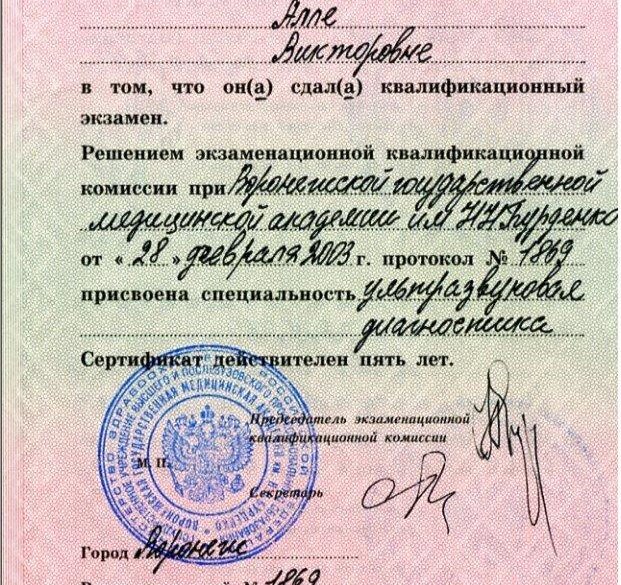 Алле
Викторовне
в том, что он(а) сдал(а) квалификационный
экзамен.
Решением экзаменационной квалификационной
комиссии при Воронежской государственной
медицинской академии им Н.Н. Бурденко
от « 28 » февраля 2003 г. протокол № 1869
присвоена специальность ультразвуковая
диагностика
Сертификат действителен пять лет.
Председатель экзаменационной
квалификационной комиссии
М. П.
Секретарь
Город Воронеж
№ 1869